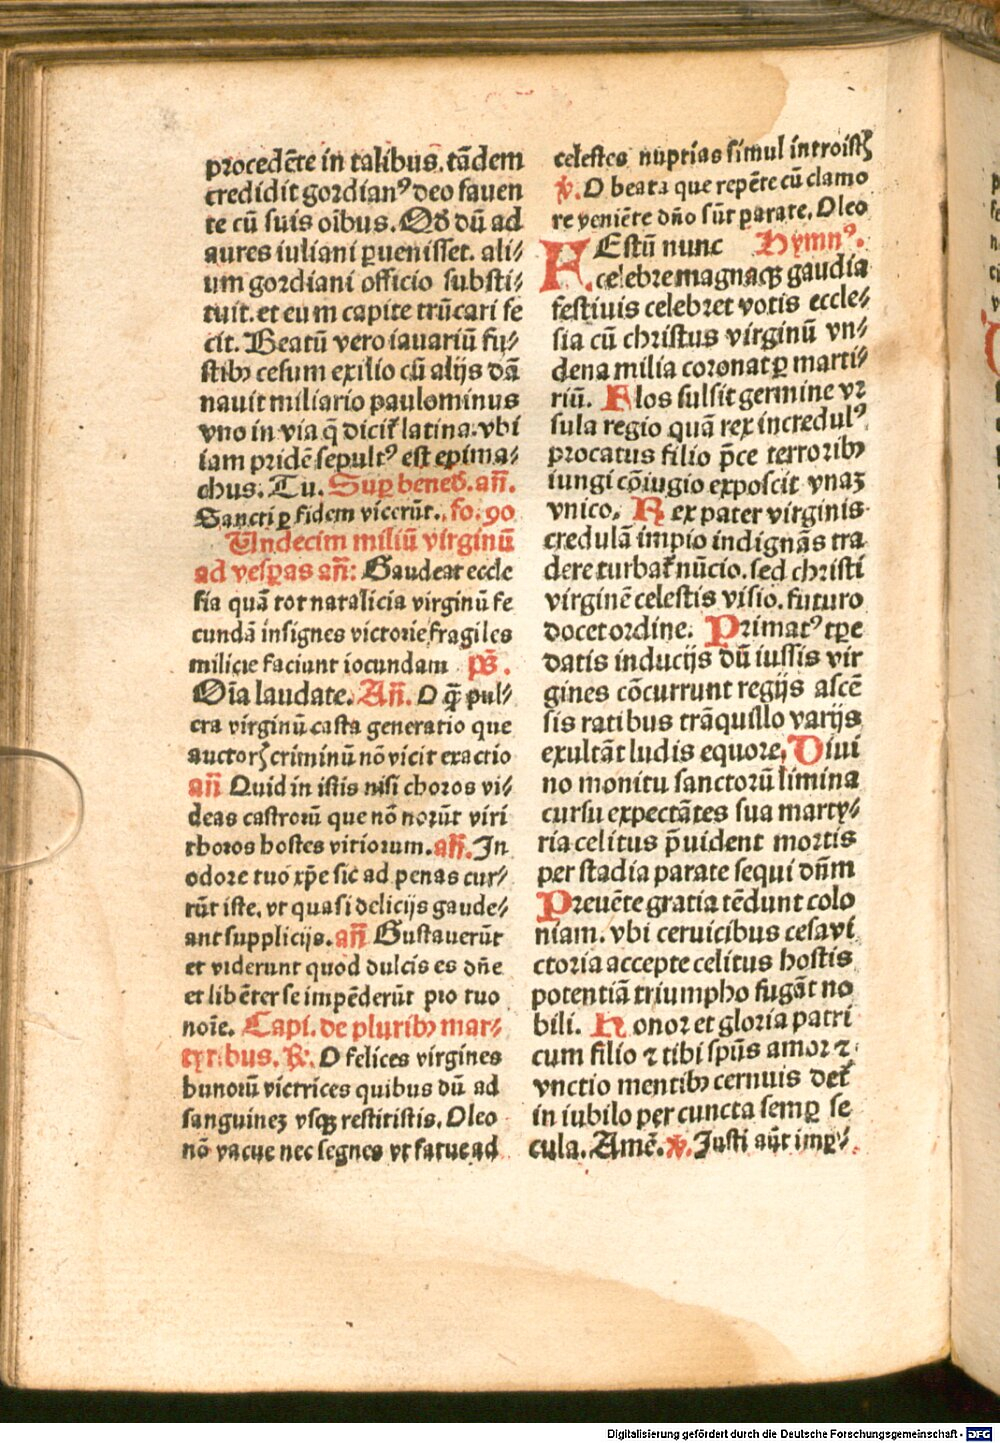 procedēte in talibus. tādem
credidit gordianꝰ deo fauen
te cū suis oībus. Qd̄ dū ad
aures iuliani ꝑuenisset. ali⸗
um gordiani officio substi⸗
tuit. et eum capite trūcari fe
cit. Beatū vero ianariū fu⸗
stibꝫ cesum exilio cū alijs dā
nauit miliario paulominus
vno in via q̄ dicit̄ latina. vbi
iam pridē sepultꝰ est epima⸗
chus. Tu. Suꝑ bened̄. añ.
Sancti ꝑ fidem vicerūt. fo. 90
Undecim miliū virginū
ad vesꝑas añ: Gaudeat eccle
sia quā tot natalicia virginū fe
cundā insignes victorie fragiles
milicie faciunt iocundam ps̄.
Oīa laudate. Añ. O q̄ pul⸗
cra virginū casta generatio que
auctorꝝ criminū nō vicit exactio
añ Quid in istis nisi choros vi⸗
deas castrorū que nō norūt viri
thoros hostes vitiorum. añ. In
odore tuo xp̄e sic ad penas cur⸗
rūt iste. vt quasi delicijs gaude⸗
ant supplicijs. añ Gustauerūt
et viderunt quod dulcis es dñe
et libēter se impēderūt pro tuo
noīe. Capi. de pluribꝫ mar⸗
tyribus. ℟. O felices virgines
hunorū victrices quibus dū ad
sanguinez vsqꝫ restitistis. Oleo
nō vacue nec segnes vt fatue ad
celestes nuptias simul introistꝭ
℣. O beata que repēte cū clamo
re veniēte dño sūt parate. Oleo
FEstū nunc Hymnꝰ.
celebre magnaqꝫ gaudia
festiuis celebret votis eccle⸗
sia cū christus virginū vn⸗
dena milia coronat ꝑ marti⸗
riū. Flos fulsit germine vr
sula regio quā rex incredulꝰ
procatus filio p̄ce terroribꝫ
iungi cōiugio exposcit vnaꝫ
vnico. Rex pater virginis
credulā impio indignās tra
dere turbat̄ nūcio. sed christi
virginē celestis visio. futuro
docet ordine. Primatꝰ tꝑe
datis inducijs dū iussis vir
gines cōcurrunt regijs ascē
sis ratibus trāquillo varijs
exultāt ludis equore. Diui
no monitu sanctorū limina
cursu expectātes sua marty⸗
ria celitus p̄uident mortis
per stadia parate sequi dñm
Preuēte gratia tēdunt colo
niam. vbi ceruicibus cesa vi
ctoria accepte celitus hostis
potentiā triumpho fugāt no
bili. Honor et gloria patri
cum filio ⁊ tibi spūs amor ⁊
vnctio mentibꝫ cernuis det̄
in iubilo per cuncta semꝑ se
cula. Amē. ℣. Justi aūt imꝑ⸗
Digitalisierung gefördert durch die Deutsche Forschungsgemeinschaft - DFG